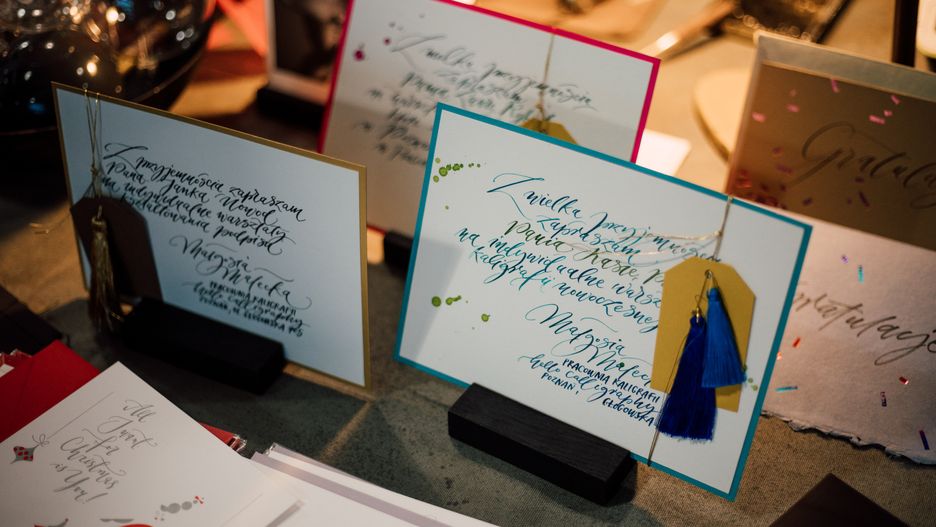 Z przyjemnością zapraszam
Pana Janka Nowod
na indywidualne warsztaty
kształtowania podpisu
Małgosia
Małecka
PRACOWNIA KALIGRAFII
Hello Calligraphy
POZNAŃ, UL. GŁOGOWSKA
Z wielką przyjemnością
zapraszam
Z wielką przyjemnością
zapraszam
Panią Kasię
na indywidualne
kaligrafii nowoczesnej
Małgosia
Małecka
PRACOWNIA KALIGRAFII
Hello Calligraphy
POZNAŃ, GŁOGOWSKA
Gratulacj
Gratulacje
All
I want
for
Christmas
is You!